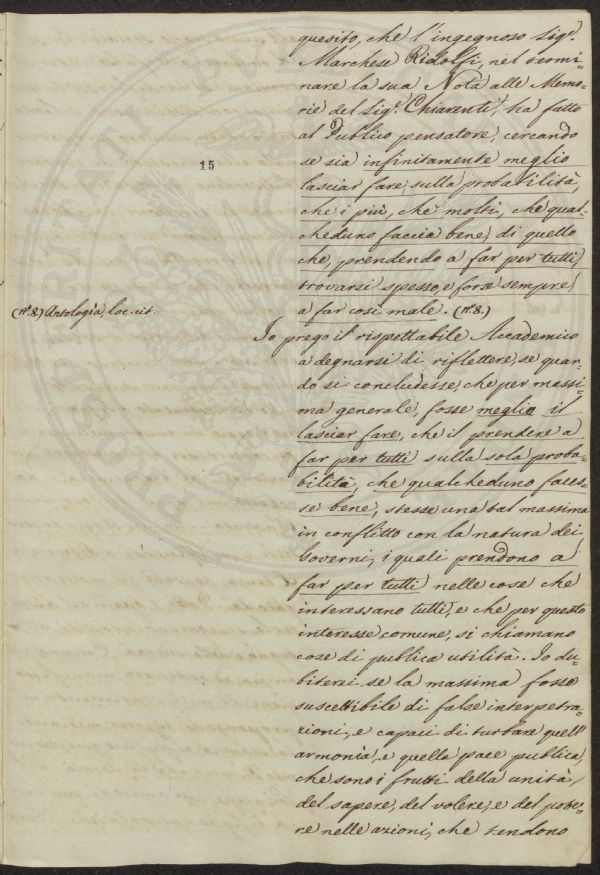 quesito, che l'ingegnoso Sig.r
Marchese Ridolfi, nel termi-
nare la sua Nota alle Memo-
rie del Sig.r Chiarenti, ha fatto
al Publico pensatore, cercando
15
se sia infinitamente meglio
lasciar fare, sulla probabilità,
che i più, che molti, che qual-
cheduno faccia bene, di quello
che, prendendo a far per tutti,
trovarsi spesso, e forse sempre,
(n.º 8.) Antologia, loc. cit.
a far così male. (n.º 8.)
Io prego il rispettabile Accademico
a degnarsi di riflettere, se quan-
do si concludesse, che per massi-
ma generale, fosse meglio il
lasciar fare, che il prendere a
far per tutti sulla sola proba-
bilità, che qualcheduno faces-
se bene, stesse una tal massima
in conflitto con la natura dei
Governi, i quali prendono a
far per tutti nelle cose che
interessano tutti, e che per questo
interesse comune, si chiamano
cose di publica utilità. Io du-
biterei se la massima fosse
suscettibile di false interpetra-
zioni, e capaci di turbare quell'
armonia, e quella pace publica,
che sono i frutti della unità
del sapere, del volere, e del pote-
re nelle azioni, che tendono